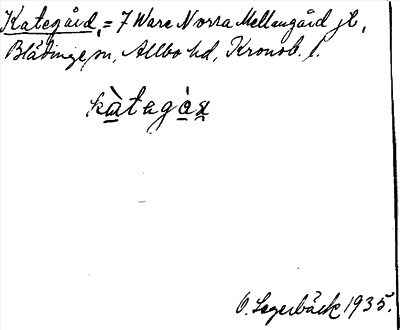 Kategård, = 7 Ware Norra Mellangård jb,
Blädinge sn, Allbo hd, Kronob. l.
kàtagàṣ
O. Lagerbäck 1935.